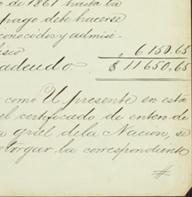 de 1861 hasta la
pago debe hacerse
conocidos y admisi-
6.150.65
adeudo $ 11650.65
como V presente en esta
el certificado de entero de
gral de la Nacion, se
otorgar la correspondiente